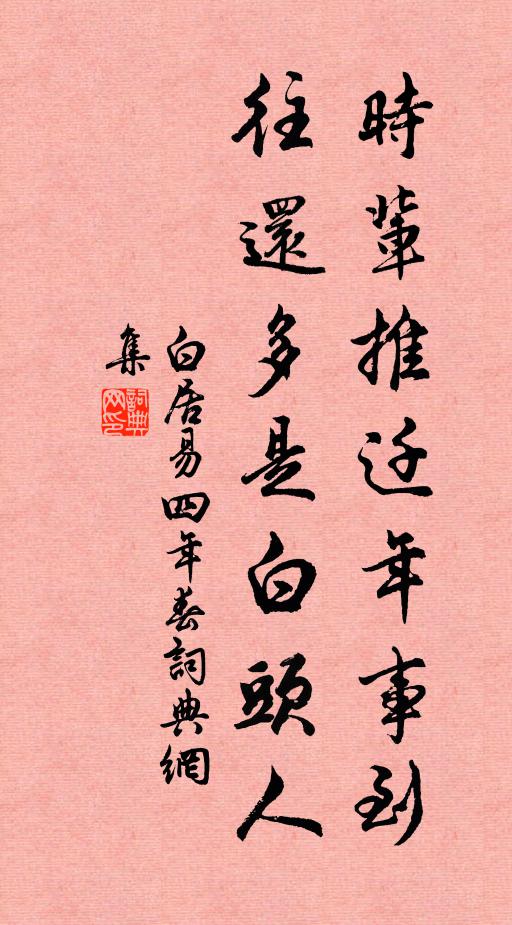 時輩推迁年事到
往還多是白頭人
白居易四年春詞典網
集
詞典网印